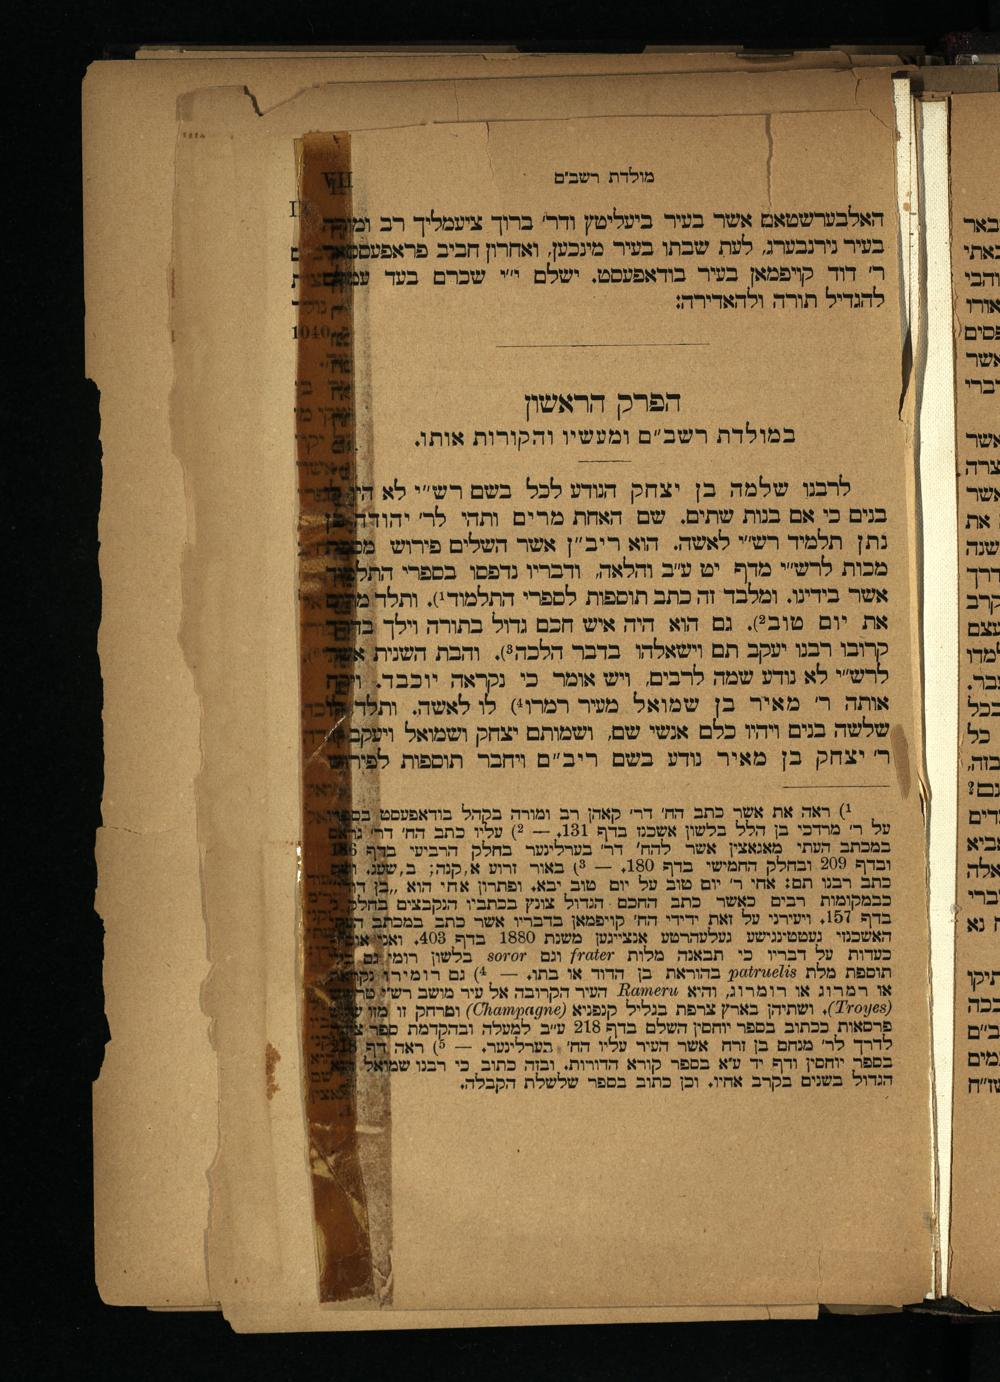 מולדת רשב״ם
VII
האלבערשטאם אשר בעיר ביעליטץ ודר׳ ברוך ציעמליך רב ומורה
בעיר נירנבערג, לעת שבתו בעיר מינכען, ואחרון חביב פראפעסאר
ר׳ דוד קויפמאן בעיר בודאפעסט. ישלם י״י שכרם בעד עמלם
להגדיל תורה ולהאדירה:
הפרק הראשון
במולדת רשב״ם ומעשיו והקורות אותו.
לרבנו שלמה בן יצחק הנודע לכל בשם רש״י לא היו לו
בנים כי אם בנות שתים. שם האחת מרים ותהי לר׳ יהודה בן
נתן תלמיד רש״י לאשה. הוא ריב״ן אשר השלים פירוש מסכת
מכות לרש״י מדף יט ע״ב והלאה, ודבריו נדפסו בספרי התלמוד
אשר בידינו. ומלבד זה כתב תוספות לספרי התלמוד¹). ותלד מרים
את יום טוב²). גם הוא היה איש חכם גדול בתורה וילך בדרך
קרובו רבנו יעקב תם וישאלהו בדבר הלכה³). והבת השנית אשר
לרש״י לא נודע שמה לרבים, ויש אומר כי נקראה יוכבד. ויקח
אותה ר׳ מאיר בן שמואל מעיר רמרו⁴) לו לאשה. ותלד
שלשה בנים ויהיו כלם אנשי שם, ושמותם יצחק ושמואל ויעקב
ר׳ יצחק בן מאיר נודע בשם ריב״ם ויחבר תוספות לפירוש
¹) ראה את אשר כתב הח׳ דר׳ קאהן רב ומורה בקהל בודאפעסט בספרו
על ר׳ מרדכי בן הלל בלשון אשכנז בדף 131. — ²) עליו כתב הח׳ דר׳ גראס
במכתב העתי מאגאצין אשר להח׳ דר׳ בערלינער בחלק הרביעי בדף 186
ובדף 209 ובחלק החמישי בדף 180. — ³) באור זרוע א, קנה; ב, שעג. ושם
כתב רבנו תם: אחי ר׳ יום טוב על יום טוב יבא. ופתרון אחי הוא „בן דודי
כבמקומות רבים כאשר כתב החכם הגדול צונץ בכתביו הנקבצים בחלק
בדף 157. ויעירני על זאת ידידי הח׳ קויפמאן בדבריו אשר כתב במכתב העתי
האשכנזי געטטינגישע געלעהרטע אנצייגען משנת 1880 בדף 403. ואני אוסיף
כעדות על דבריו כי תבאנה מלות frater וגם soror בלשון רומי גם בלי
תוספת מלת patruelis בהוראת בן הדוד או בתו. — ⁴) גם רומירו נקראת
או רמרוג או רומרוג, והיא Rameru העיר הקרובה אל עיר מושב רש״י טרויש
(Troyes). ושתיהן בארץ צרפת בגליל קנפניא (Champagne) ומרחק זו מזו
פרסאות ככתוב בספר יוחסין השלם בדף 218 ע״ב למעלה ובהקדמת ספר צדה
לדרך לר׳ מנחם בן זרח אשר העיר עליו הח׳ בערלינער. — ⁵) ראה דף 218
בספר יוחסין ודף יד ע״א בספר קורא הדורות. ובזה כתוב כי רבנו שמואל היה
הגדול בשנים בקרב אחיו. וכן כתוב בספר שלשלת הקבלה.